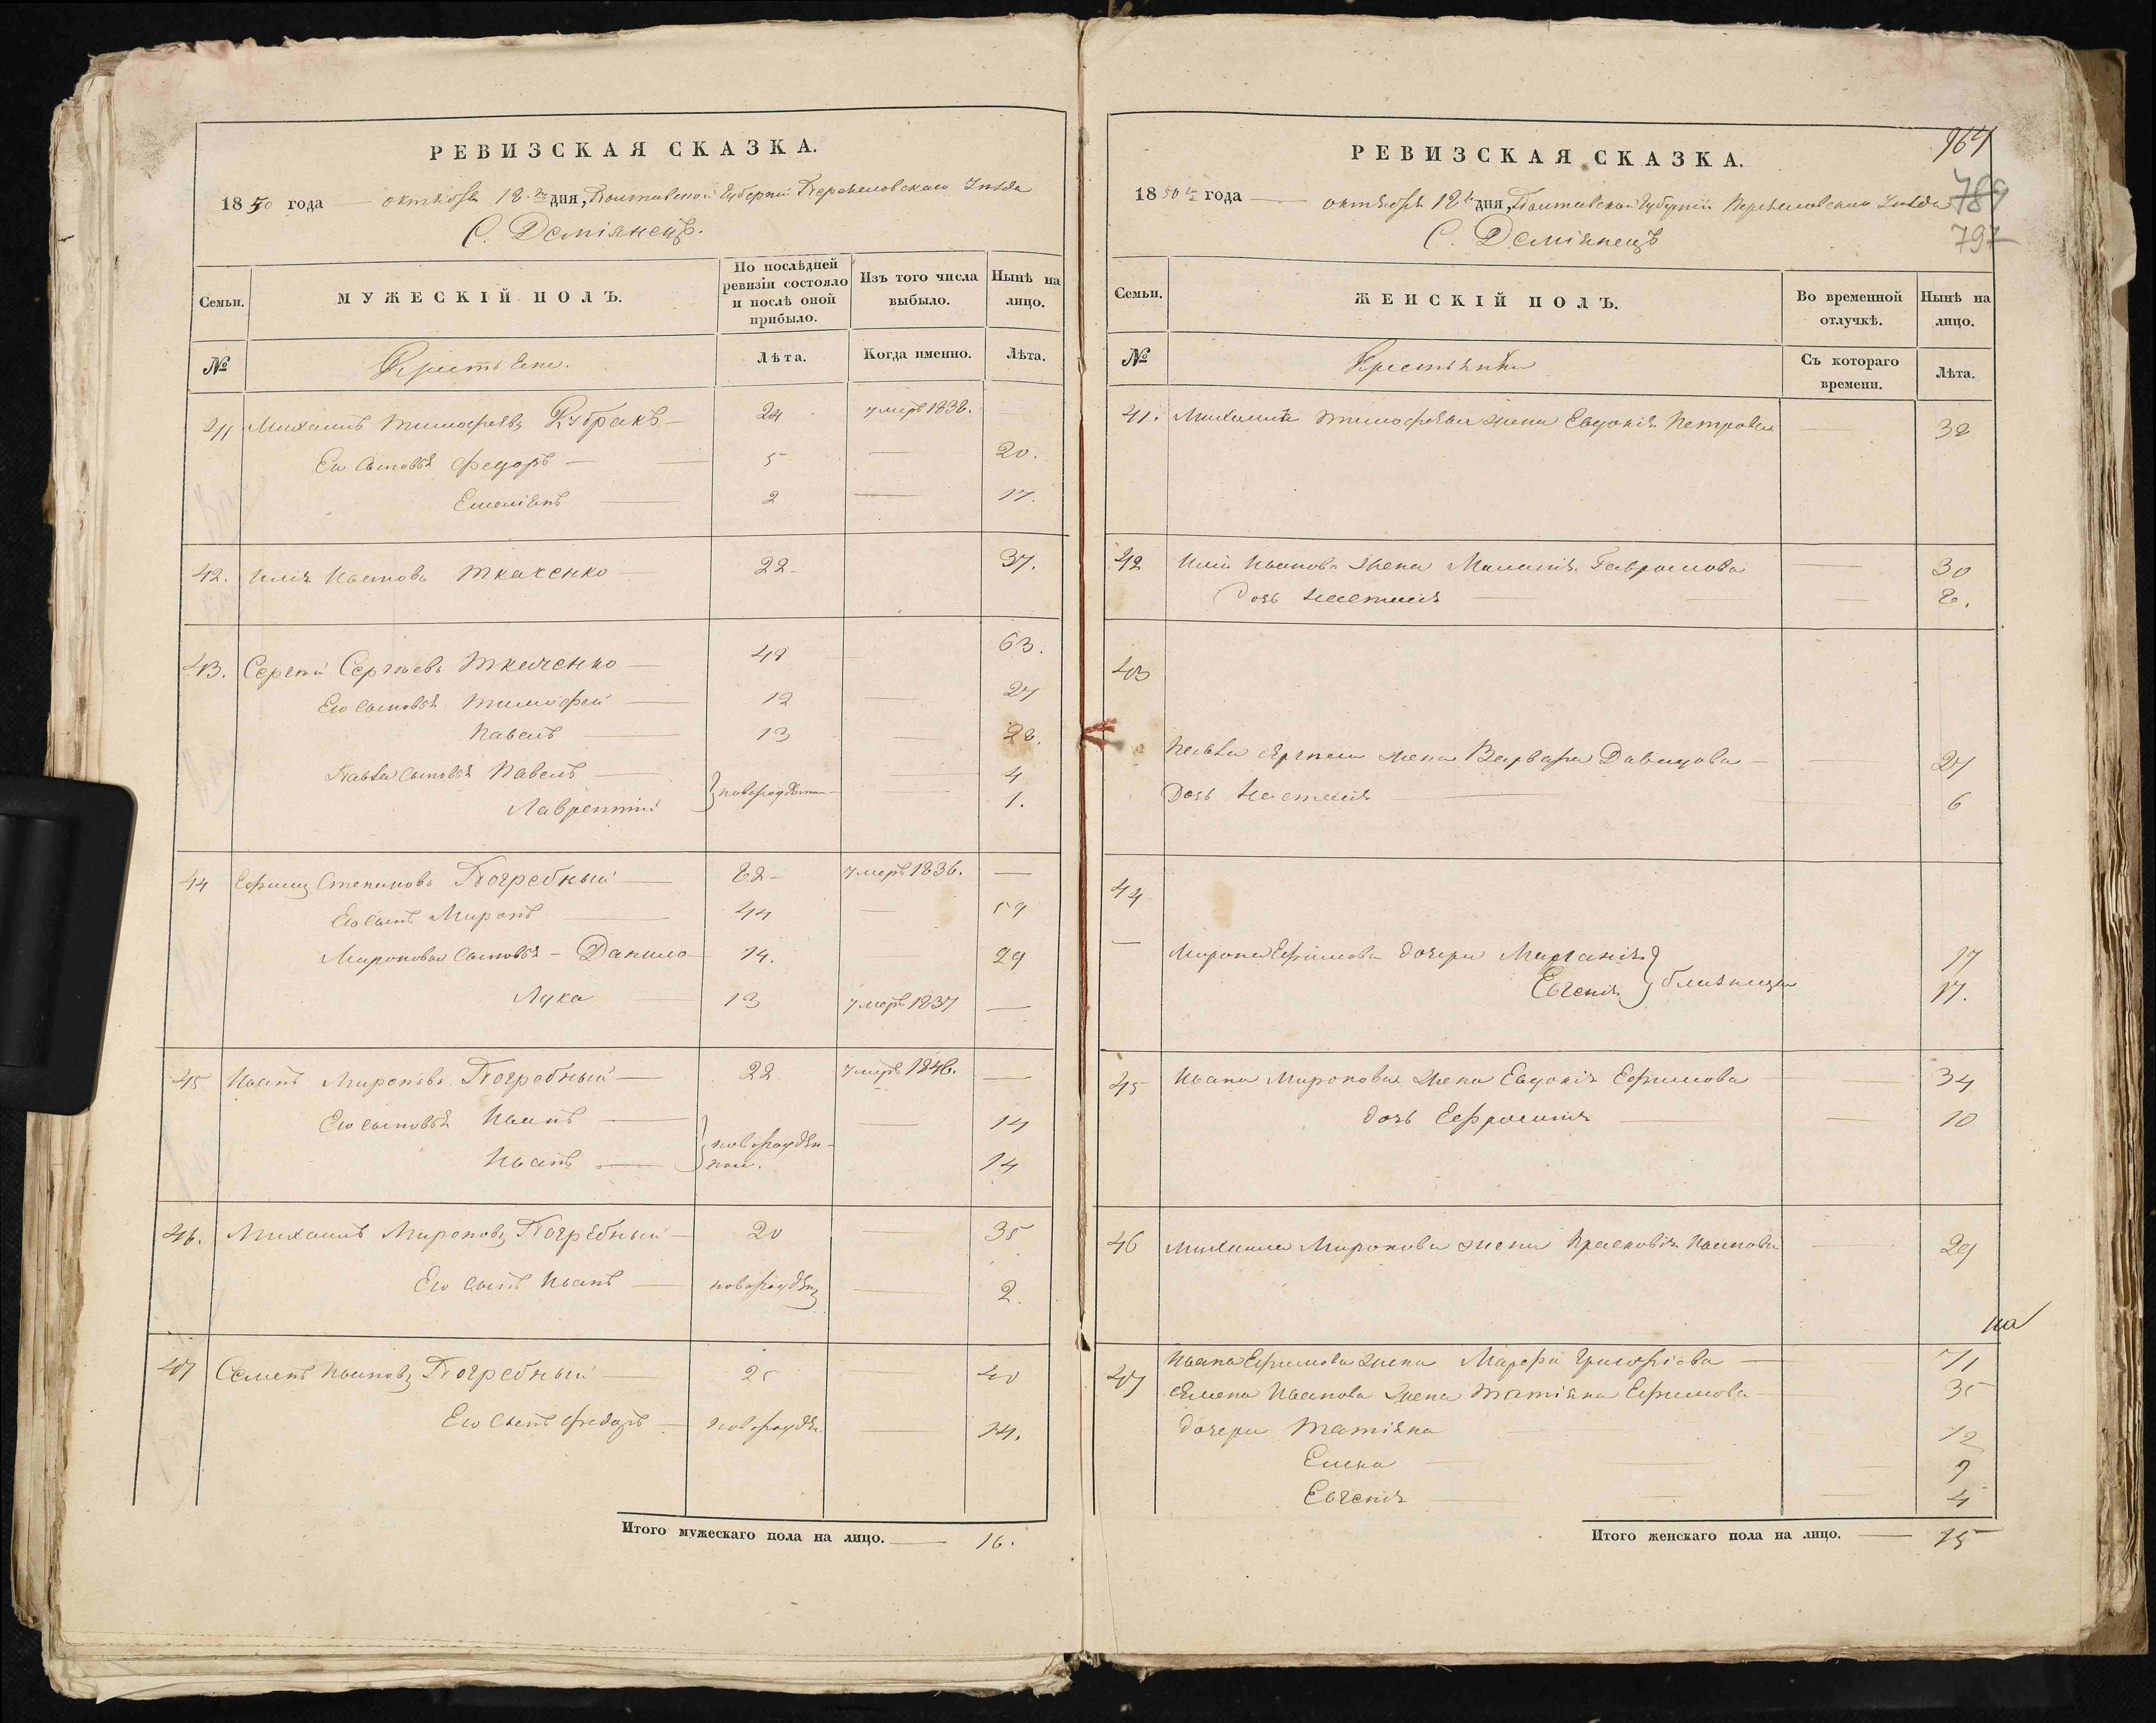 РЕВИЗСКАЯ СКАЗКА.
1850 года — октября 12го дня, Полтавской Губерніи Переяславскаго Уѣзда
С. Деміянецъ.
Семьи.
МУЖЕСКІЙ ПОЛЪ.
По послѣдней ревизіи состояло и послѣ оной прибыло.
Изъ того числа выбыло.
Нынѣ на лицо.
№
Крестьяне.
Лѣта.
Когда именно.
Лѣта.
41 Михаилъ Тимофеевъ Кубракъ — 24 умеръ 1838.
Его сыновья Федоръ — 5 — 20.
Емеліянъ — 2 — 17.
42. Илія Ивановъ Ткаченко — 22 37.
43. Сергѣй Сергѣевъ Ткаченко — 48 63.
Его сыновья Тимофей — 12 — 27
Павелъ — 13 — 28.
Павла сыновья Павелъ — новорожденны — 4
Лаврентій 1.
44 Ефимъ Степановъ Погребный — 82 умеръ 1836. —
Его сынъ Миронъ — 44 — 59
Мироновы сыновья — Данило 14. — 29
Лука 13 умеръ 1837 —
45 Иванъ Мироновъ Погребный — 22 умеръ 1846. —
Его сыновья Иванъ — новорожденные. — 14
Иванъ — 14
46. Михаилъ Мироновъ Погребный — 20 — 35
Его сынъ Иванъ — новорожден — 2.
47 Семенъ Ивановъ Погребный — 25 — 40
Его сынъ Федоръ — новорожден. — 14.
Итого мужескаго пола на лицо. — 16.
964
789
797
РЕВИЗСКАЯ СКАЗКА.
1850го года — октября 12го дня, Полтавской Губерніи Переяславскаго Уѣзда
С. Деміянецъ
Семьи.
ЖЕНСКІЙ ПОЛЪ.
Во временной отлучкѣ.
Нынѣ на лицо.
№
Крестьянки
Съ котораго времени.
Лѣта.
41. Михаила Тимофеева жена Евдокія Петрова — 38
42 Иліи Иванова жена Маланія Гаврилова — 30
Дочь Настасія — 8.
43
Павла Сергѣева жена Варвара Давидова — 27
Дочь Настасія — 6
44
— Мирона Ефимова дочери Маланія 17
Евгенія близнецы 17.
45 Ивана Миронова жена Евдокія Ефимова 34
дочь Ефросинія — 10
46 Михаила Миронова жена Прасковія Иванова — 29
на
47 Ивана Ефимова жена Марфа Григоріева — 71
Семена Иванова жена Татіяна Ефимова — 35
дочери Татіяна 12
Елена — 9
Евгенія — 4
Итого женскаго пола на лицо. — 15